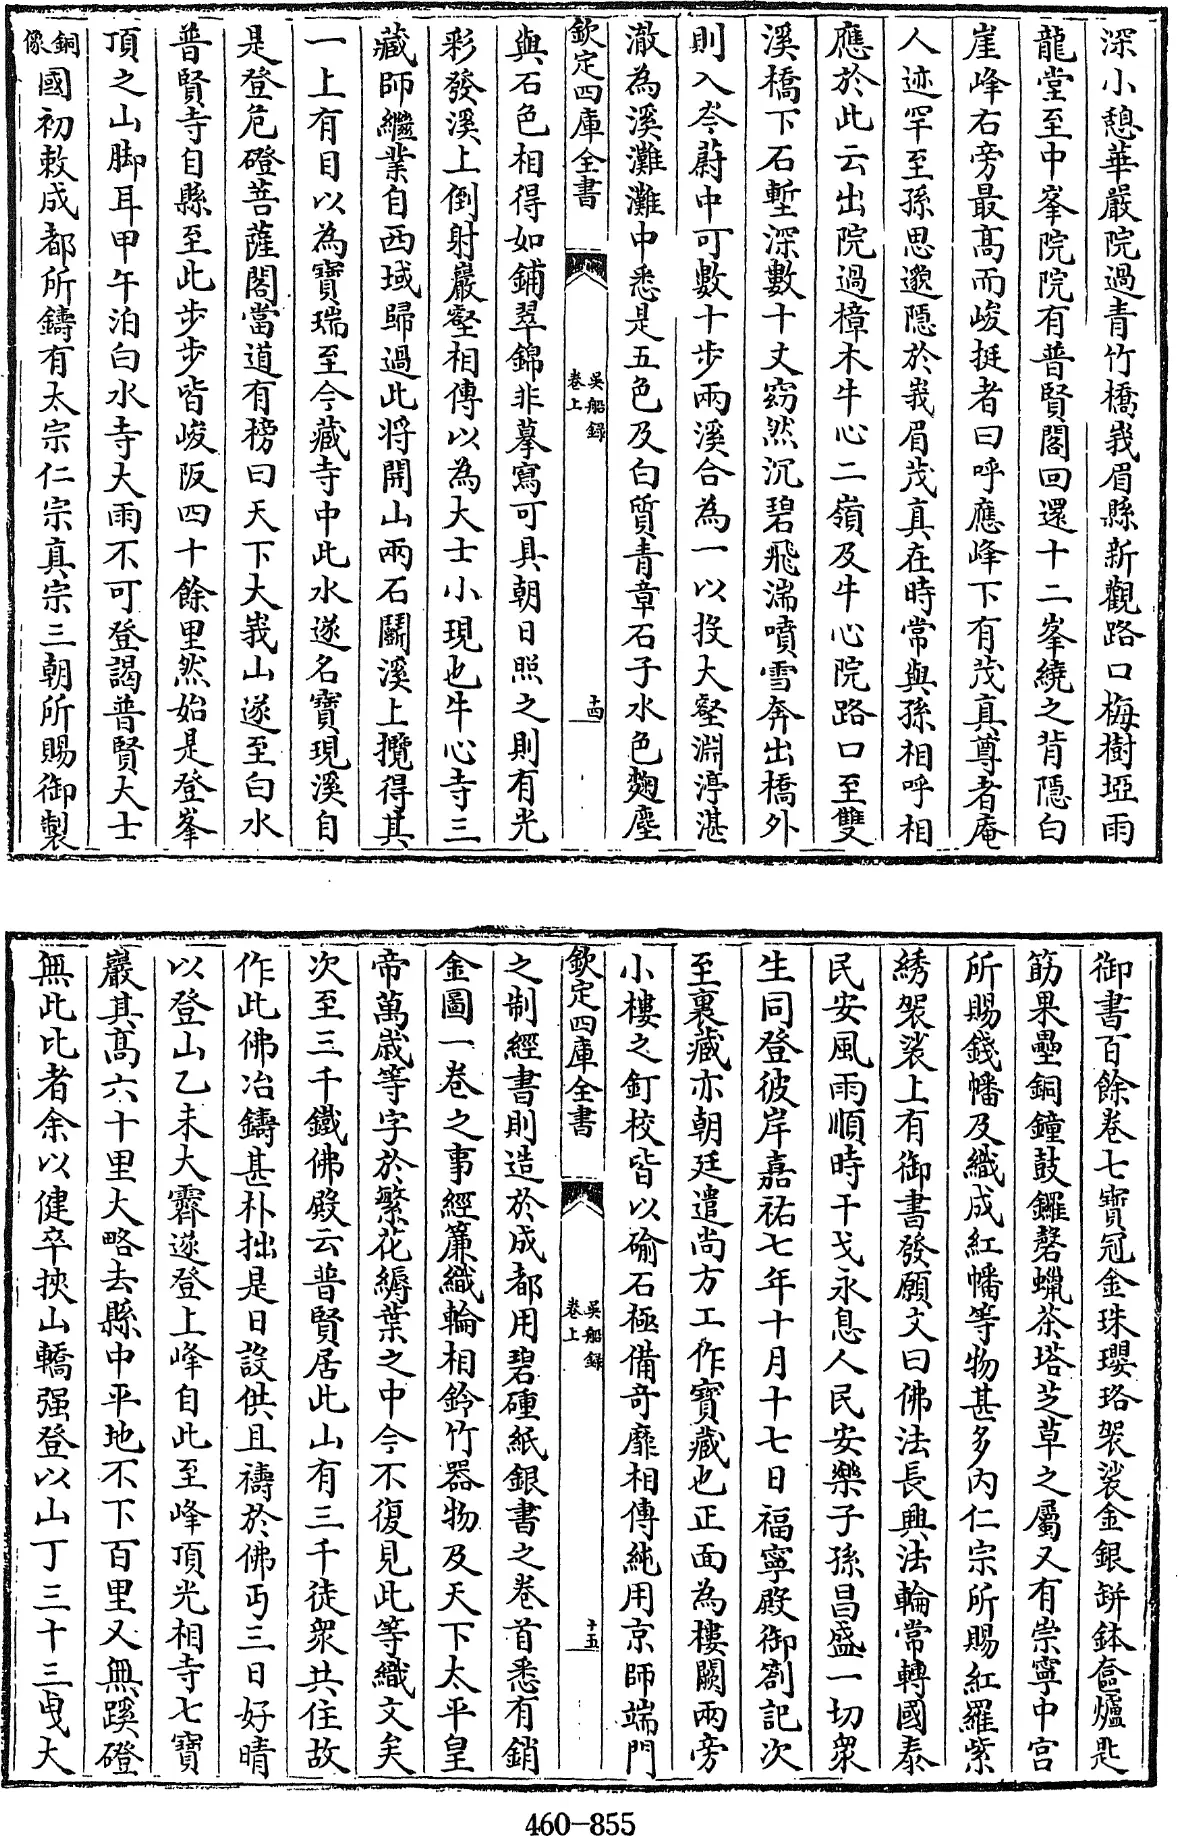 深小憩華嚴院過青竹橋峩眉縣新觀路口梅樹埡兩
龍堂至中峯院院有普賢閣回還十二峯繞之背隠白
崖峰右旁最髙而峻挺者曰呼應峰下有茂真尊者庵
人迹罕至孫思邈隠於峩眉茂真在時常與孫相呼相
應於此云出院過樟木牛心二嶺及牛心院路口至雙
溪橋下石塹深數十丈窈然沉碧飛湍噴雪奔出橋外
則入岑蔚中可數十步兩溪合為一以投大壑淵渟湛
澈為溪灘灘中悉是五色及白質青章石子水色麴塵
欽定四庫全書
吳船録
卷上
十四
與石色相得如鋪翠錦非摹寫可具朝日照之則有光
彩發溪上倒射巖壑相傳以為大士小現也牛心寺三
藏師繼業自西域歸過此将開山兩石鬭溪上攬得其
一上有目以為寶瑞至今藏寺中此水遂名寶現溪自
是登危磴菩薩閣當道有榜曰天下大峩山遂至白水
普賢寺自縣至此步步皆峻阪四十餘里然始是登峯
頂之山脚耳甲午泊白水寺大雨不可登謁普賢大士
銅像國初敕成都所鑄有太宗仁宗真宗三朝所賜御製
御書百餘卷七寶冠金珠瓔珞袈裟金銀缾鉢奩爐匙
筯果罍銅鐘鼓鑼磬蠟茶塔芝草之屬又有崇寧中宫
所賜錢幡及織成紅幡等物甚多内仁宗所賜紅羅紫
綉袈裟上有御書發願文曰佛法長興法輪常轉國泰
民安風雨順時干戈永息人民安樂子孫昌盛一切衆
生同登彼岸嘉祐七年十月十七日福寧殿御劄記次
至裏藏亦朝廷遣尚方工作寳藏也正面為樓闕兩旁
小樓之釘校皆以鍮石極備奇靡相傳純用京師端門
欽定四庫全書
吳船録
卷上
十五
之制經書則造於成都用碧硾紙銀書之卷首悉有銷
金圖一卷之事經簾織輪相鈴竹器物及天下太平皇
帝萬歲等字於繁花縟葉之中今不復見此等織文矣
次至三千鐵佛殿云普賢居此山有三千徒衆共住故
作此佛冶鑄甚朴拙是日設供且禱於佛丐三日好晴
以登山乙未大霽遂登上峰自此至峰頂光相寺七寶
巖其髙六十里大略去縣中平地不下百里又無蹊磴
無此比者余以健卒挾山轎强登以山丁三十三曵大
460-855